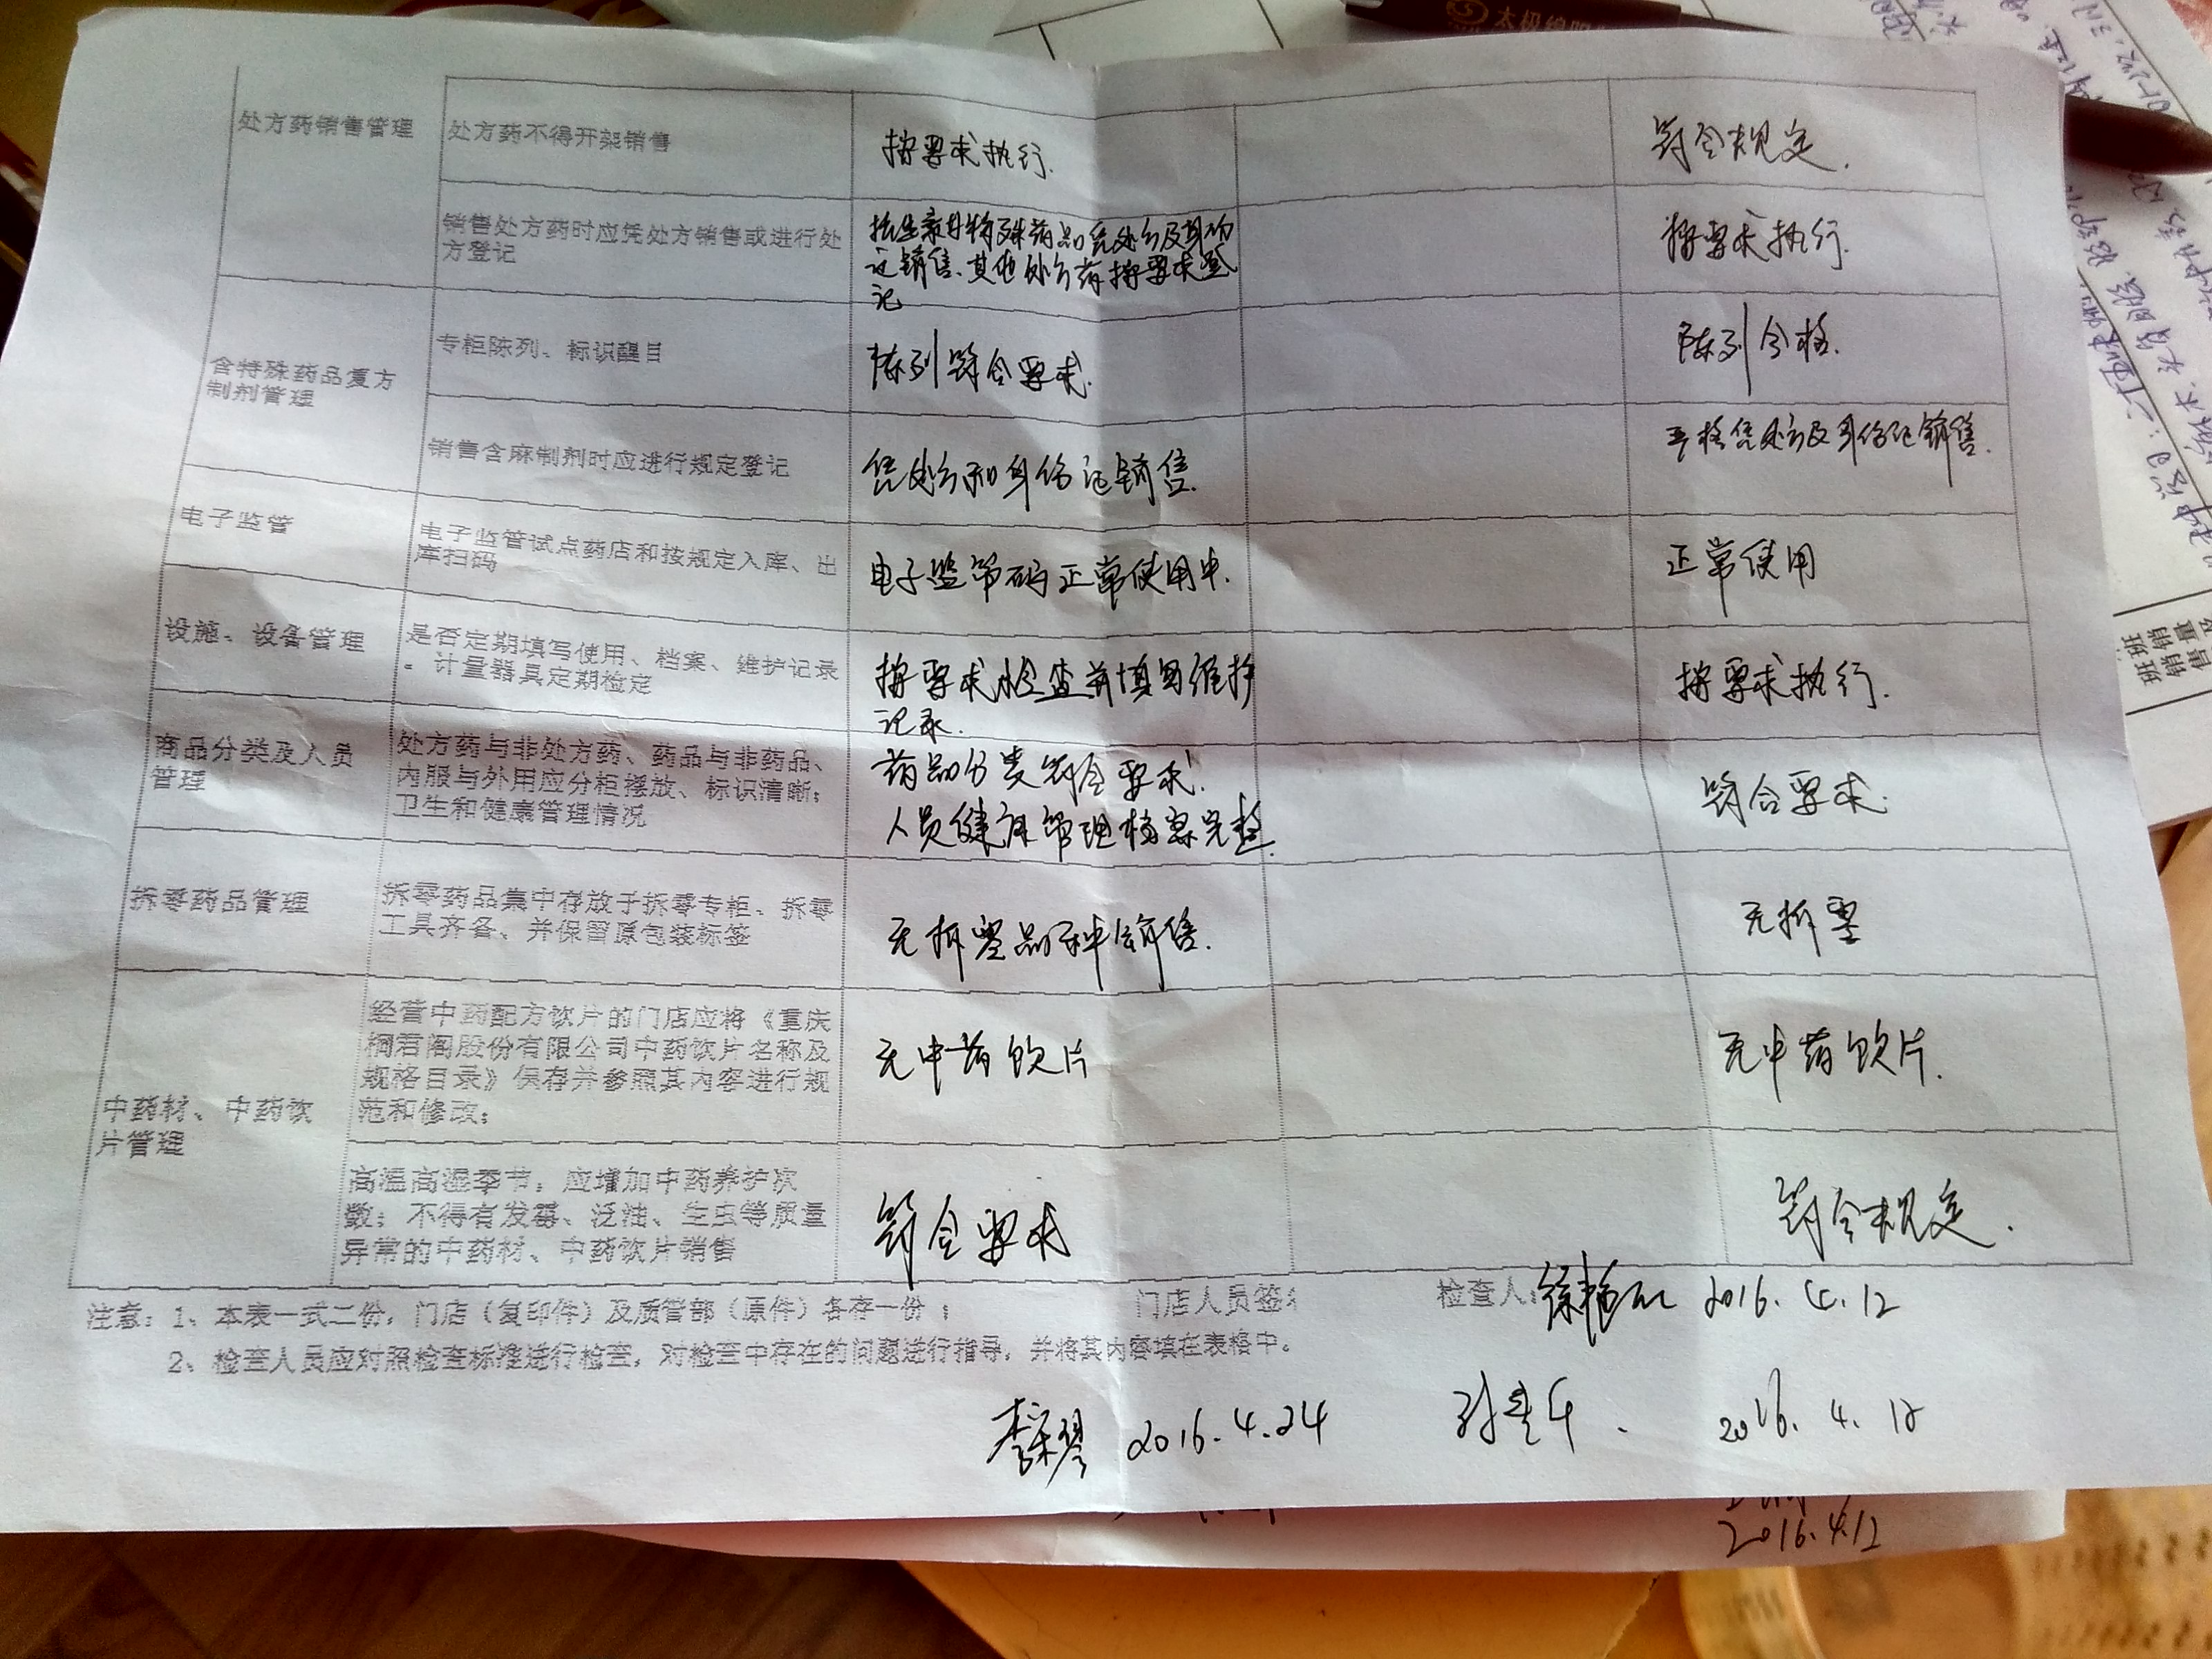 处方药销售管理
处方药不得开架销售
按要求执行.
符合规定.
销售处方药时应凭处方销售或进行处
方登记
抗生素井特殊药品凭处方及身份
证销售、其他处方药按要求登
记
按要求执行.
含特殊药品复方
制剂管理
专柜陈列、标识醒目
陈列符合要求.
陈列合格.
销售含麻制剂时应进行规定登记
凭处方和身份证销售.
严格凭处方及身份证销售.
电子监管
电子监管试点药店和按规定入库、出
库扫码
电子监管码正常使用中.
正常使用
设施、设备管理
是否定期填写使用、档案、维护记录
。计量器具定期检定
按要求检查并填写维护
记录.
按要求执行.
商品分类及人员
管理
处方药与非处方药、药品与非药品、
内服与外用应分柜摆放、标识清晰；
卫生和健康管理情况
药品分类符合要求.
人员健康管理档案完整.
符合要求.
拆零药品管理
拆零药品集中存放于拆零专柜、拆零
工具齐备、并保留原包装标签
无拆零品种销售.
无拆零
中药材、中药饮
片管理
经营中药配方饮片的门店应将《重庆
桐君阁股份有限公司中药饮片名称及
规格目录》保存并参照其内容进行规
范和修改；
无中药饮片
无中药饮片.
高温高湿季节，应增加中药养护次
数；不得有发霉、泛油、生虫等质量
异常的中药材、中药饮片销售
符合要求
符合规定.
注意：1、本表一式二份，门店（复印件）及质管部（原件）各存一份；
门店人员签名
检查人：
2016.4.12
2、检查人员应对照检查标准进行检查，对检查中存在的问题进行指导，并将其内容填在表格中。
2016.4.24
2016.4.12
2016.4.12